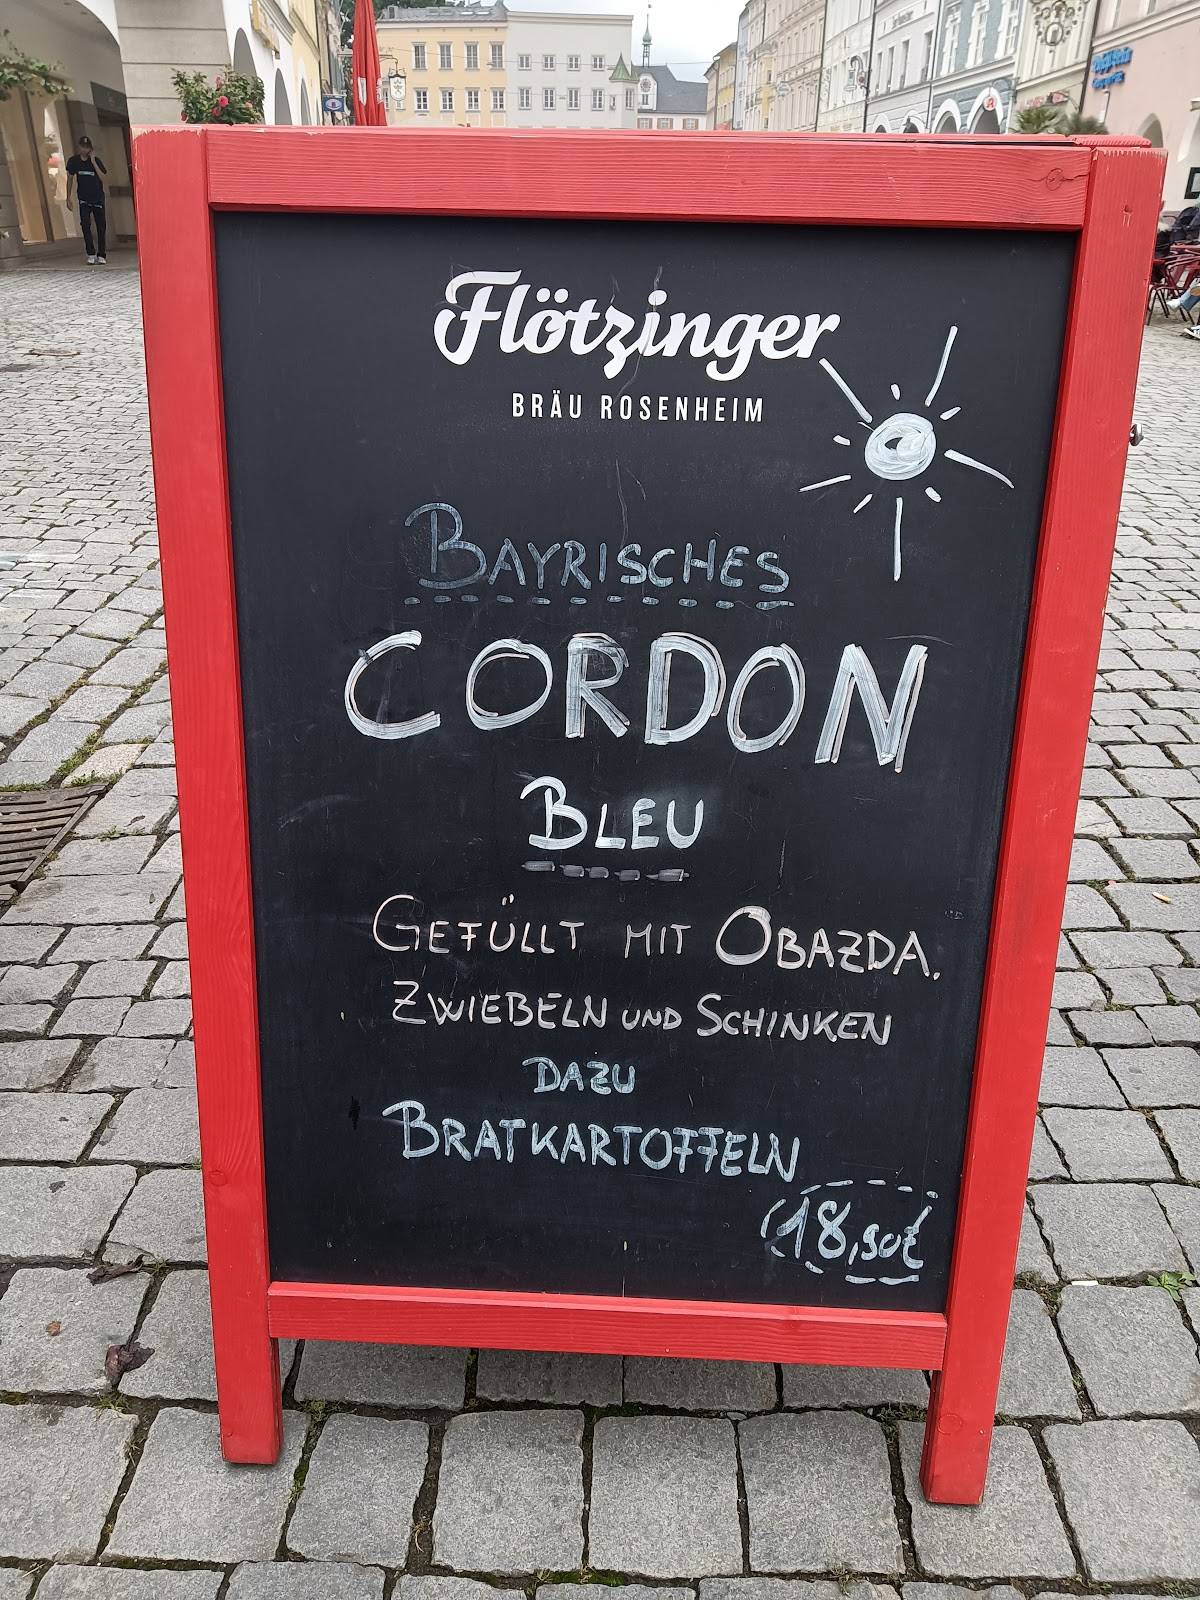 Flötzinger
BRÄU ROSENHEIM
BAYRISCHES
CORDON
BLEU
GEFÜLLT MIT OBAZDA.
ZWIEBELN UND SCHINKEN
DAZU
BRATKARTOFFELN
18,90€